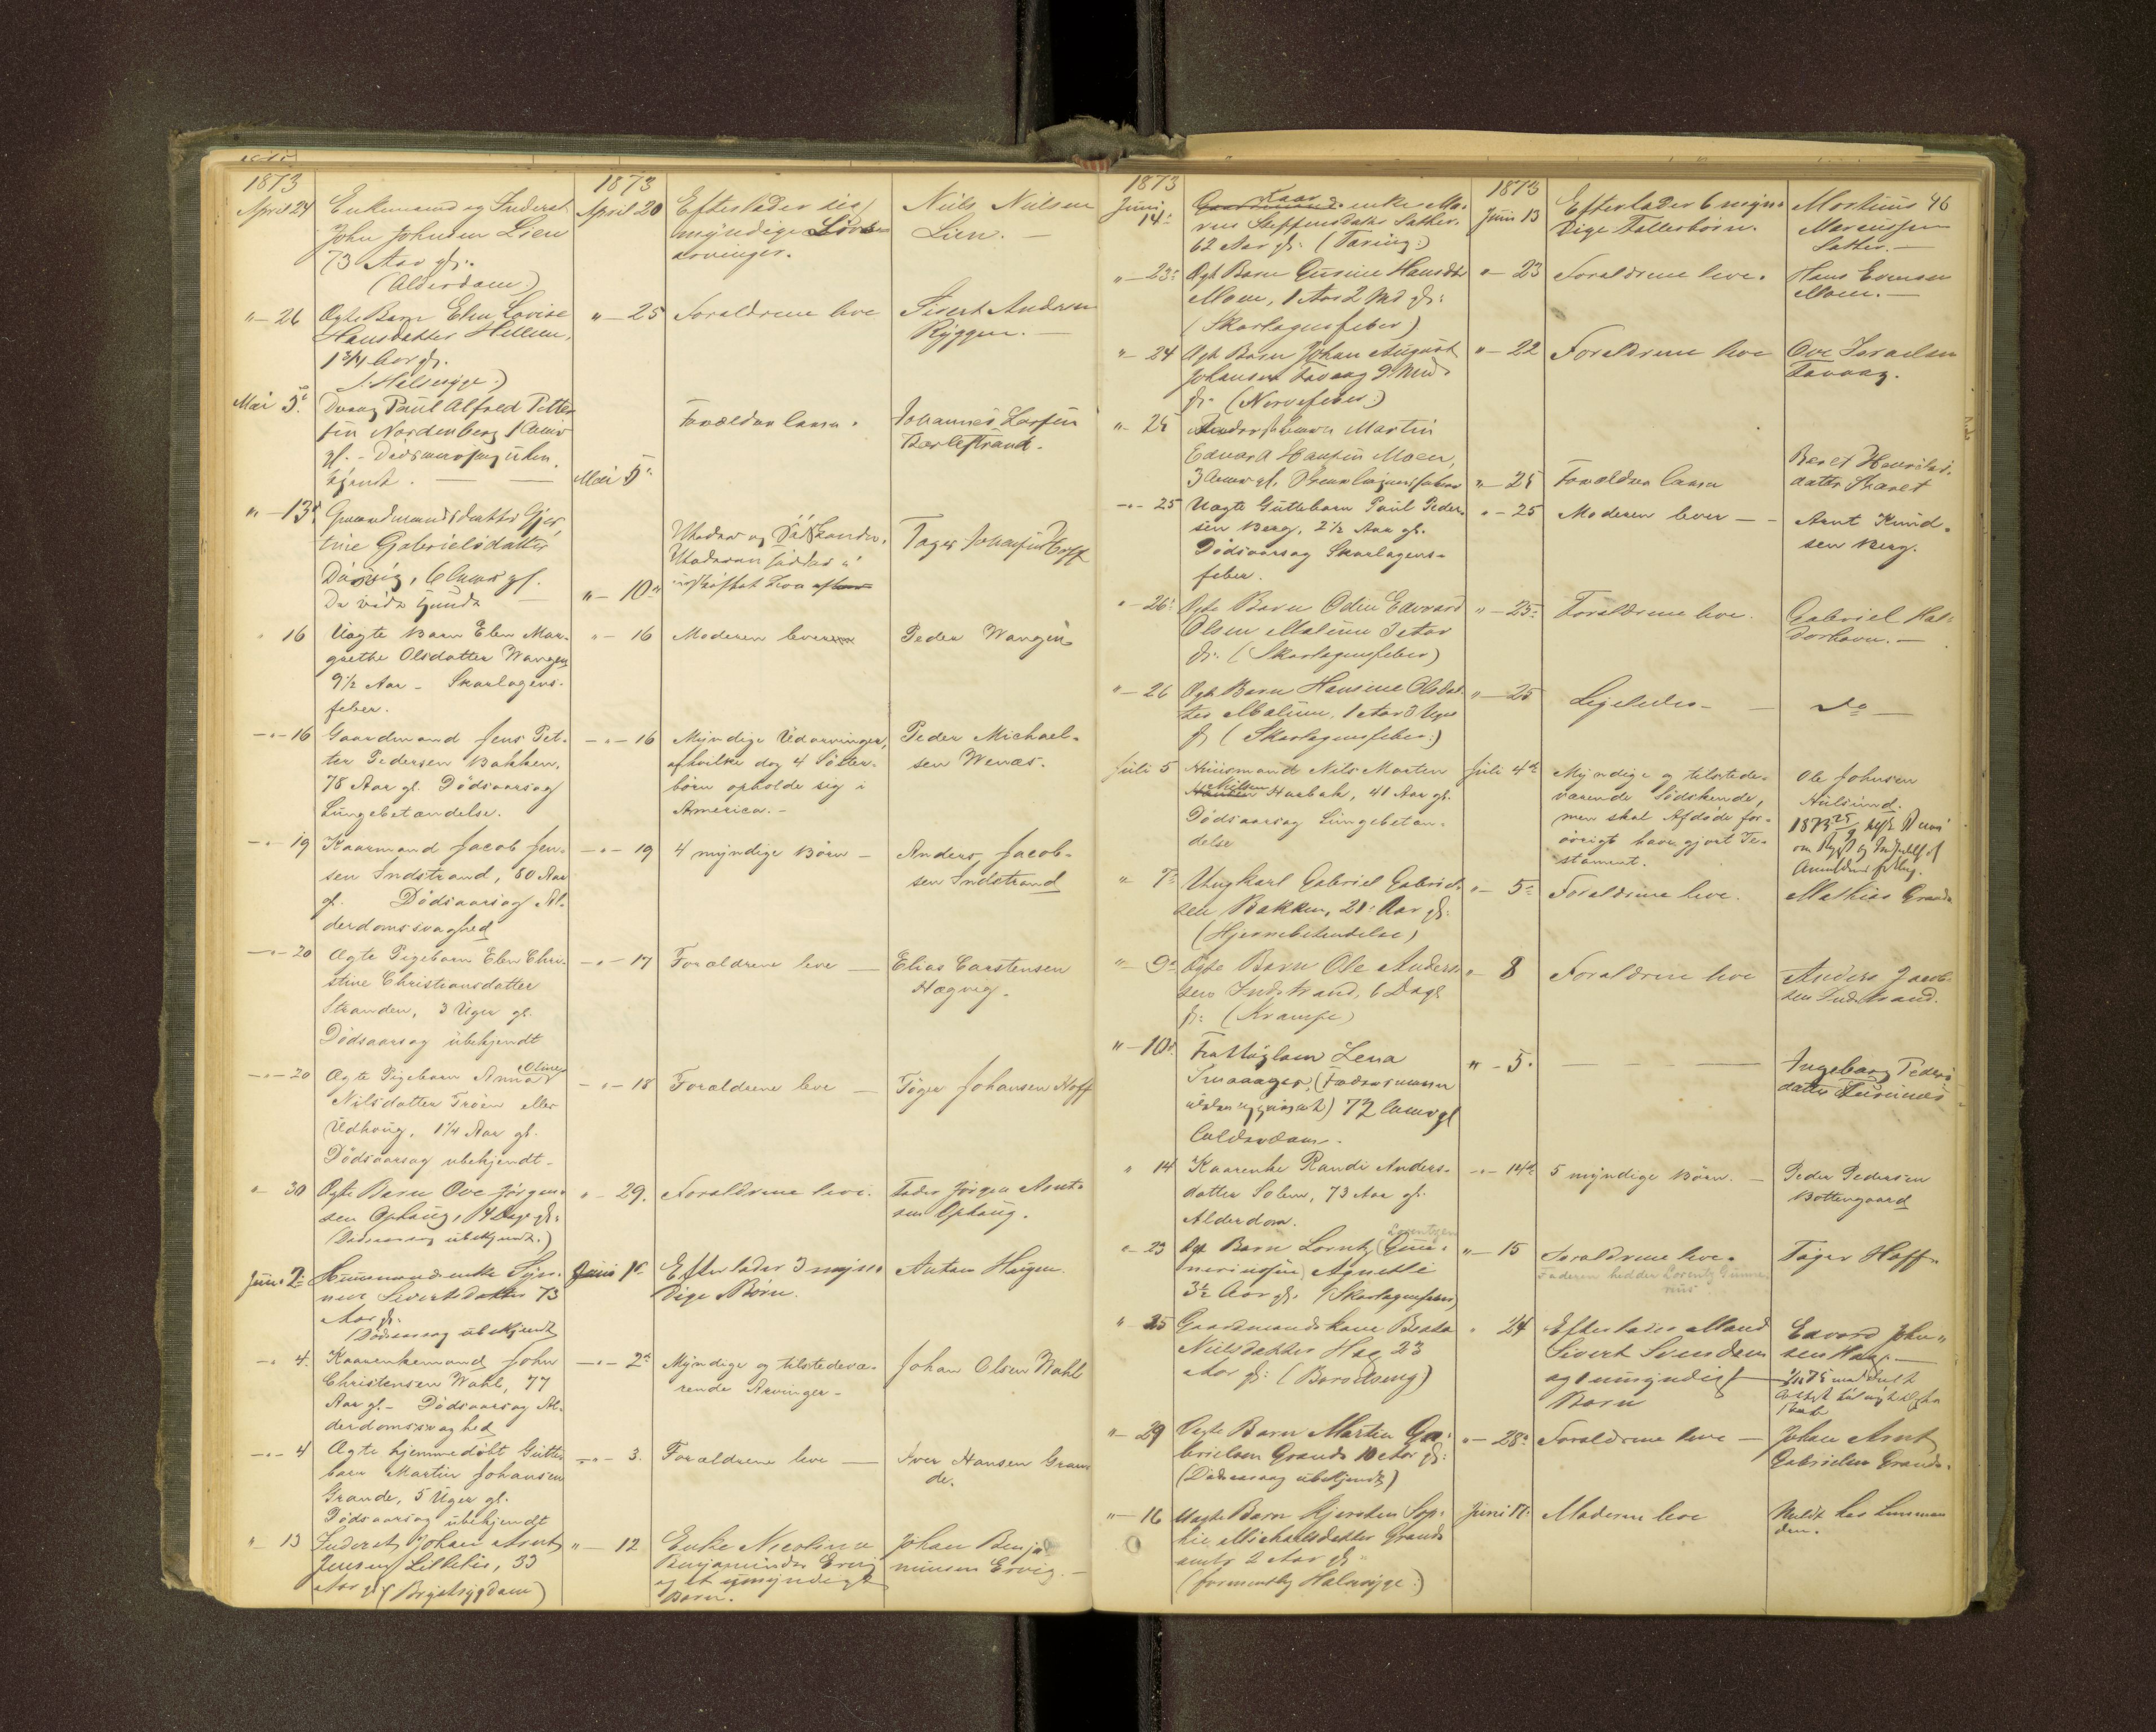 1873
1873
April 24
Enkemand og Inderst
John Johnsen Lien
73 Aar gl.
(Alderdom)
April 20
Efterlader sig
myndige
arvinger.
Niels Nielsen
Lien. —
"— 26
Ægte Barn Elen Lovise
Hansdatter
1 3/4 Aar gl.
(: Halssyge :)
"— 25
Forældrene leve
Sivert Andersen
Ryggen. —
Mai 5te
Dreng Paul Alfred Petter
sen Nordenberg 1 Aar
gl. - Dødsaarsag uben
kjendt. — —
Mai 5te
Forældrene leve.
Johannes
"— 13de
Gaardmandsdatter Gjer
trine Gabrielsdatter
6 Aar gl.
"— 10de
Moder og Søskende.
Moderen sidder i
uskiftet Bo
Tøger Johansen Hoff
" 16
Uægte Barn Elen Mar-
grethe Olsdatter Wangen
9 1/2 Aar - Skarlagens-
feber.
"— 16
Moderen lever
Peder Wangen
—"— 16
Gaardmand Jens Pet-
ter Pedersen Bakken,
78 Aar gl. Dødsaarsag
Lungebetændelse.
—"— 16
Myndige Udarvinger,
afhvilke dog 4 Søster-
børn opholde sig i
America. -
Peder Michael-
sen Wenæs.
—"— 19
Kaarmand Jacob Jen-
sen Indstrand, 80 Aar
gl. Dødsaarsag Al-
derdomssvaghed
—"— 19
4 myndige Børn —
Anders Jacob-
sen Indstrand
—"— 20
Ægte Pigebarn Elen Chri-
stine Christiansdatter
Stranden, 3 Uger gl.
Dødsaarsag ubekjendt
—"— 17
Forældrene leve —
Elias Carstensen
Hægvig.
—"— 20
Ægte Pigebarn Anna Oline
Nilsdatter Trøen eller
Udhoug, 1 1/4 Aar gl.
Dødsaarsag ubekjendt -
—"— 18
Forældrene leve —
Tøger Johansen Hoff
"— 30
Ægte Barn Ove Jørgen-
sen Ophaug, 14 Dage gl:
(Dødsaarsag ubekjendt.)
"— 29.
Forældrene leve.
Fader Jørgen Arnt-
sen Ophaug.
Juni 2:
Huusmandsenke Syn-
neve Sivertsdatter 73
Aar gl.
(Dødsaarsag ubekjendt
Juni 1ste
Efterlader 3 myn-
dige Børn.
Anton Haugen
—"— 4.
Kaarenkemand John
Christensen Wahl, 77
Aar gl. - Dødsaarsag Al-
derdomssvaghed
—"— 2den
Myndige og tilstedevæ-
rende Arvinger -
Johan Olsen Wahl
—"— 4
Ægte hjemmedøbt Gutte-
barn Martin Johansen
Grande, 5 Uger gl.
Dødsaarsag ubekjendt
—"— 3.
Forældrene leve —
Iver Hansen Gran
de.
"— 13
Inderst Johan Arnt
Jensen 33
Aar gl (Brystsygdom)
"— 12
Enke Nicolina
Benjaminsdr Ervig
og et umyndigt
Barn.
Johan Benja-
minsen Ervig. —
1873
1873
46
Juni
14:
Kaar
enke Ma-
ren Steffensdatter Sæther.
62 Aar gl: (Tæring.)
Juni 13
Efterlader 6 myn-
dige Fællesbørn.
Martinus
Marcussen
Sæther. —
"— 23:
Ægte Barn Gurine Hansdtr
Moen, 1 Aar 2 Md gl:
(Skarlagensfeber)
"— 23
Forældrene leve.
Hans Evensen
Moen. —
"— 24
Ægte Barn Johan August
Johansen Tavaag 9 Md.
gl: (Nervefeber:)
"— 22
Forældrene leve
Ove Israelsen
Tavaag.
"— 25
Martin
Edvard Hansen Moen,
3 Aar gl. Skarlagensfeber
"— 25
Forældrene leve
Beret Henriks-
datter
—"— 25
Uægte Guttebarn Paul Peder-
sen Berg, 2 1/2 Aar gl.
Dødsaarsag Skarlagens-
feber.
"— 25
Moderen lever — -
Arnt Knud-
sen Berg.
"— 26:
Ægte Barn Odin Edvard
Olsen 3 Aar
gl: (Skarlagensfeber)
"— 25:
Forældrene leve.
Gabriel Hal-
dorhavn. —
"— 26
Ægte Barn Hansine Olsdat-
ter 1 Aar 3 Uger
gl (Skarlagensfeber:)
"— 25
Ligeledes — —
Do —
Juli 5
Huusmand Nils Morten
Nielsen Harbak, 41 Aar gl.
Dødsaarsag Lungebetæn-
delse
Juli 4de
Myndige og tilstede-
værende Sødskende,
men skal Afdøde for-
øvrigt have gjort Te-
stament.
Ole Johnsen
Hulsund.
1873 25/9
"— 7:
Ungkarl Gabriel Gabriel-
sen Bakken, 21: Aar gl:
(Hjernebetændelse)
"— 5:
Forældrene leve.
Mathias Grande
"— 9:
Ægte Barn Ole Anders-
sen Indstrand, 6 Dage
gl: (Krampe)
"— 8
Forældrene leve
Anders Jacob-
sen Indstrand.
"— 10de
Fattiglem Lena
77 Aar gl
Alderdom.
"— 5.
— — —
Ingeborg Peders
datter
" 14
Kaarenke Randi Anders-
datter Solem, 73 Aar gl.
Alderdom.
—"— 14de
5 myndige Børn. —
Peder Pedersen
Bottengaard
"— 23
Lorentzen
Ægt Barn Lorntz (Gun-
neriussen) Agnethe
3 1/2 Aar gl. (Skarlagensfeber)
"— 15
Forældrene leve.
Faderen hedder Lorentz Gunne-
rius
Tøger Hoff
"— 25
Gaardmandskone Beata
Nielsdatter Hag 23
Aar gl: (Barselseng)
" 24
Efterlader Mand
Sivert Svendsen
og 1 umyndigt
Barn
Edvard John-
sen
"— 29
Ægte Barn Martin Ga-
brielsen Grande 10 Aar gl:
(Dødsaarsag ubekjendt)
"— 28:
Forældrene leve —
Johan Arnt
Gabrielsen Grande.
"— 16
Uægte Barn Kjersten Sop-
hie Michaelsdatter Grande
2 Aar gl.
(formentlig Halssyge:)
Juni 11:
Moderen leve
Meldt hos Lensman
den.